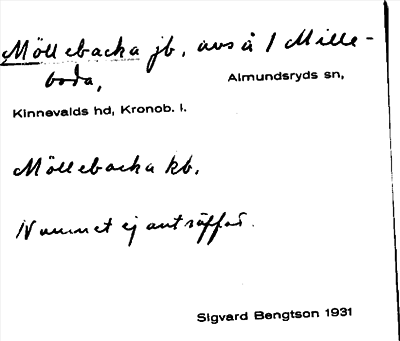 Möllebacka jb, avs å / Mille-
boda,
Almundsryds sn,
Kinnevalds hd, Kronob. l.
Möllebacka kb.
Namnet ej anträffat.
Sigvard Bengtson 1931